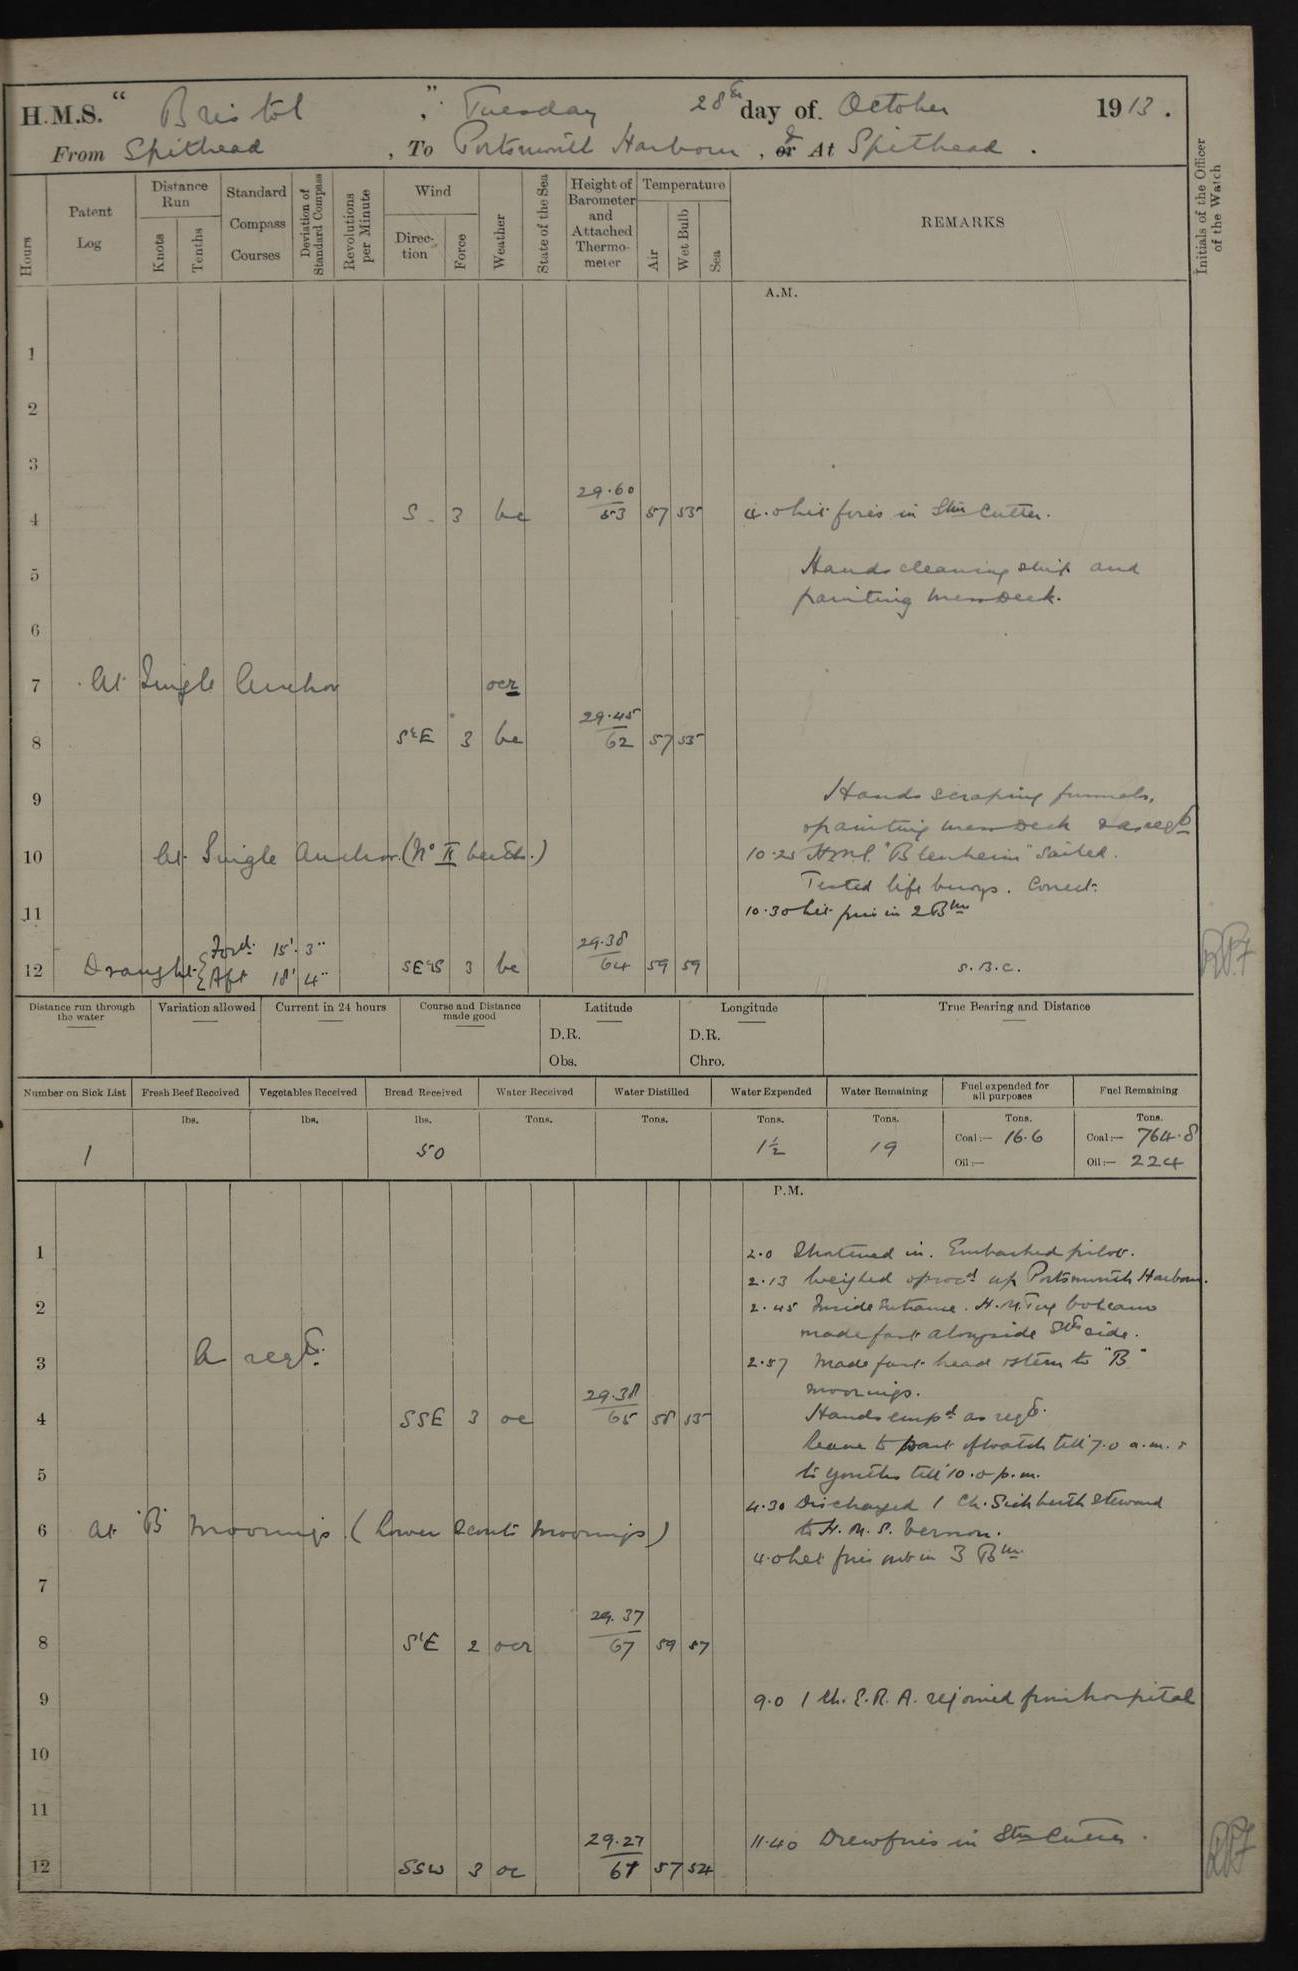 H.M.S. “ Bristol ”, Tuesday 28th day of October 1913.
From Spithead, To Portsmouth Harbour, & or At Spithead.
Hours
Patent Log
Distance Run
Knots
Tenths
Standard Compass Courses
Deviation of Standard Compass
Revolutions per Minute
Wind
Direction
Force
Weather
State of the Sea
Height of Barometer and Attached Thermometer
Temperature
Air
Wet Bulb
Sea
REMARKS
Initials of the Officer of the Watch
A.M.
1
2
3
4 S. 3 bc 29.60 53 57 55 4.0 Lit fires in Stm Cutter.
5 Hands cleaning ship and
painting mess deck.
6
7 At Single Anchor ocr
8 S'E 3 bc 29.45 62 57 55
9 Hands scraping funnels,
& painting mess deck & as reqd
10 At Single Anchor (No II berth.) 10.25 H.M.S. "Blenheim" sailed.
Tested life buoys. Correct.
11 10.30 Lit fires in 2 Brs
12 Draught { Ford. 15' 3" Aft 18' 4" SE'S 3 bc 29.38 64 59 59 S.B.C.
Distance run through the water
Variation allowed
Current in 24 hours
Course and Distance made good
Latitude
D.R.
Obs.
Longitude
D.R.
Chro.
True Bearing and Distance
Number on Sick List
Fresh Beef Received
Vegetables Received
Bread Received
Water Received
Water Distilled
Water Expended
Water Remaining
Fuel expended for all purposes
Fuel Remaining
lbs. lbs. lbs. Tons. Tons. Tons. Tons. Tons. Tons.
1 50 1½ 19 Coal:— 16.6 Coal:— 764.8
Oil:— Oil:— 224
P.M.
1 2.0 Shortened in. Embarked pilot.
2.13 Weighed & procd up Portsmouth Harbour.
2 2.45 Inside Entrance. H.M. Tug Volcano
made fast alongside Stbd side.
3 A reqd. 2.57 Made fast head & stern to "B"
moorings.
4 SSE 3 oc 29.38 65 58 55 Hands empd as reqd.
Leave to part of watch till 7.0 a.m. &
5 to youths till 10.0 p.m.
4.30 Discharged 1 Ch. Sick berth Steward
6 At "B" Moorings (Lower Scouts Moorings) to H.M.S. Vernon.
4.0 Let fires out in 3 Brs
7
8 S'E 2 ocr 29.37 67 59 57
9 9.0 1 Ch. E.R.A. rejoined from hospital
10
11
11.40 Drew fires in Stm Cutter.
12 SSW 3 oc 29.27 67 57 54